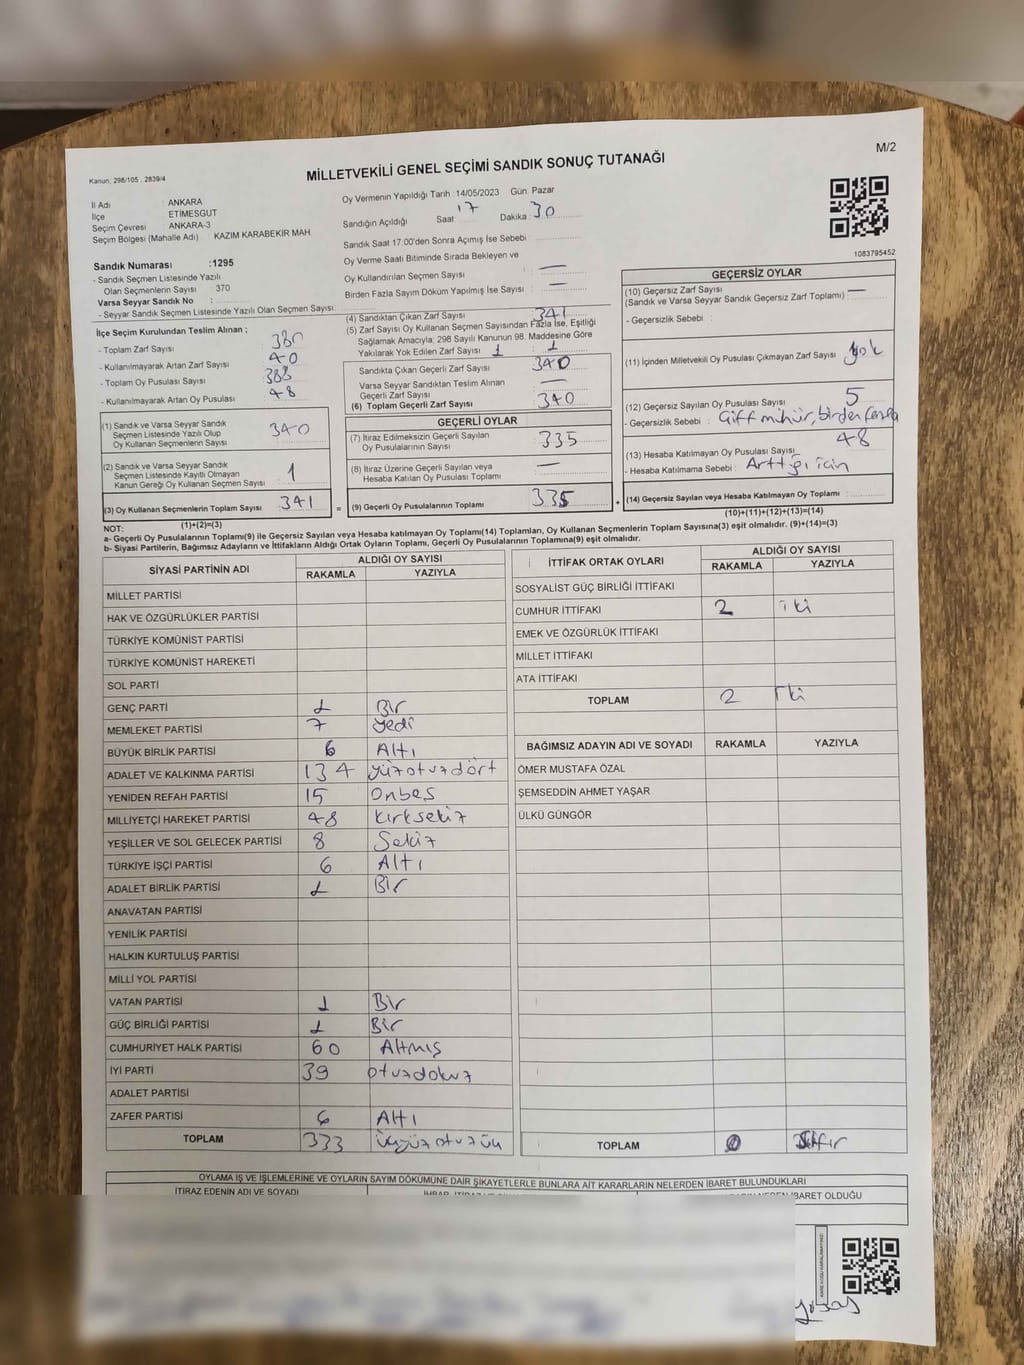 M/2
Kanun, 298/105 , 2839/4
MİLLETVEKİLİ GENEL SEÇİMİ SANDIK SONUÇ TUTANAĞI
İl Adı : ANKARA
İlçe : ETİMESGUT
Seçim Çevresi : ANKARA-3
Seçim Bölgesi (Mahalle Adı) KAZIM KARABEKİR MAH.
Sandık Numarası :1295
- Sandık Seçmen Listesinde Yazılı
Olan Seçmenlerin Sayısı 370
Varsa Seyyar Sandık No :
- Seyyar Sandık Seçmen Listesinde Yazılı Olan Seçmen Sayısı:
Oy Vermenin Yapıldığı Tarih :14/05/2023 Gün: Pazar
Sandığın Açıldığı Saat: 17 Dakika : 30
Sandık Saat 17:00'den Sonra Açımış İse Sebebi
Oy Verme Saati Bitiminde Sırada Bekleyen ve
Oy Kullandırılan Seçmen Sayısı : —
Birden Fazla Sayım Döküm Yapılmış İse Sayısı : —
1083795452
İlçe Seçim Kurulundan Teslim Alınan ;
- Toplam Zarf Sayısı : 380
- Kullanılmayarak Artan Zarf Sayısı : 40
- Toplam Oy Pusulası Sayısı : 388
- Kullanılmayarak Artan Oy Pusulası : 48
(1) Sandık ve Varsa Seyyar Sandık
Seçmen Listesinde Yazılı Olup
Oy Kullanan Seçmenlerin Sayısı : 340
(2) Sandık ve Varsa Seyyar Sandık
Seçmen Listesinde Kayıtlı Olmayan
Kanun Gereği Oy Kullanan Seçmen Sayısı : 1
(3) Oy Kullanan Seçmenlerin Toplam Sayısı : 341
(1)+(2)=(3)
(4) Sandıktan Çıkan Zarf Sayısı : 341
(5) Zarf Sayısı Oy Kullanan Seçmen Sayısından Fazla İse, Eşitliği
Sağlamak Amacıyla; 298 Sayılı Kanunun 98. Maddesine Göre
Yakılarak Yok Edilen Zarf Sayısı 1 : 1
Sandıkta Çıkan Geçerli Zarf Sayısı : 340
Varsa Seyyar Sandıktan Teslim Alınan
Geçerli Zarf Sayısı : —
(6) Toplam Geçerli Zarf Sayısı : 340
GEÇERLİ OYLAR
(7) İtiraz Edilmeksizin Geçerli Sayılan
Oy Pusulalarının Sayısı : 335
(8) İtiraz Üzerine Geçerli Sayılan veya
Hesaba Katılan Oy Pusulası Toplamı : —
= (9) Geçerli Oy Pusulalarının Toplamı : 335 +
GEÇERSİZ OYLAR
(10) Geçersiz Zarf Sayısı : —
(Sandık ve Varsa Seyyar Sandık Geçersiz Zarf Toplamı)
- Geçersizlik Sebebi :
(11) İçinden Milletvekili Oy Pusulası Çıkmayan Zarf Sayısı : yok
(12) Geçersiz Sayılan Oy Pusulası Sayısı : 5
- Geçersizlik Sebebi : Çift mühür, birden fazla
(13) Hesaba Katılmayan Oy Pusulası Sayısı : 48
- Hesaba Katılmama Sebebi : Arttığı için
(14) Geçersiz Sayılan veya Hesaba Katılmayan Oy Toplamı :
(10)+(11)+(12)+(13)=(14)
NOT:
a- Geçerli Oy Pusulalarının Toplam(9) ile Geçersiz Sayılan veya Hesaba katılmayan Oy Toplamı(14) Toplamları, Oy Kullanan Seçmenlerin Toplam Sayısına(3) eşit olmalıdır. (9)+(14)=(3)
b- Siyasi Partilerin, Bağımsız Adayların ve İttifakların Aldığı Ortak Oyların Toplamı, Geçerli Oy Pusulalarının Toplamına(9) eşit olmalıdır.
SİYASİ PARTİNİN ADI ALDIĞI OY SAYISI
RAKAMLA YAZIYLA
MİLLET PARTİSİ
HAK VE ÖZGÜRLÜKLER PARTİSİ
TÜRKİYE KOMÜNİST PARTİSİ
TÜRKİYE KOMÜNİST HAREKETİ
SOL PARTİ
GENÇ PARTİ 1 Bir
MEMLEKET PARTİSİ 7 Yedi
BÜYÜK BİRLİK PARTİSİ 6 Altı
ADALET VE KALKINMA PARTİSİ 134 yüzotuzdört
YENİDEN REFAH PARTİSİ 15 Onbeş
MİLLİYETÇİ HAREKET PARTİSİ 48 Kırksekiz
YEŞİLLER VE SOL GELECEK PARTİSİ 8 Sekiz
TÜRKİYE İŞÇİ PARTİSİ 6 Altı
ADALET BİRLİK PARTİSİ 1 Bir
ANAVATAN PARTİSİ
YENİLİK PARTİSİ
HALKIN KURTULUŞ PARTİSİ
MİLLİ YOL PARTİSİ
VATAN PARTİSİ 1 Bir
GÜÇ BİRLİĞİ PARTİSİ 1 Bir
CUMHURİYET HALK PARTİSİ 60 Altmış
İYİ PARTİ 39 otuzdokuz
ADALET PARTİSİ
ZAFER PARTİSİ 6 Altı
TOPLAM 333 üçyüzotuzüç
İTTİFAK ORTAK OYLARI ALDIĞI OY SAYISI
RAKAMLA YAZIYLA
SOSYALİST GÜÇ BİRLİĞİ İTTİFAKI
CUMHUR İTTİFAKI 2 iki
EMEK VE ÖZGÜRLÜK İTTİFAKI
MİLLET İTTİFAKI
ATA İTTİFAKI
TOPLAM 2 İki
BAĞIMSIZ ADAYIN ADI VE SOYADI RAKAMLA YAZIYLA
ÖMER MUSTAFA ÖZAL
ŞEMSEDDİN AHMET YAŞAR
ÜLKÜ GÜNGÖR
TOPLAM 0 Sıfır
OYLAMA İŞ VE İŞLEMLERİNE VE OYLARIN SAYIM DÖKÜMÜNE DAİR ŞİKAYETLERLE BUNLARA AİT KARARLARIN NELERDEN İBARET BULUNDUKLARI
İTİRAZ EDENİN ADI VE SOYADI
İBARET OLDUĞU